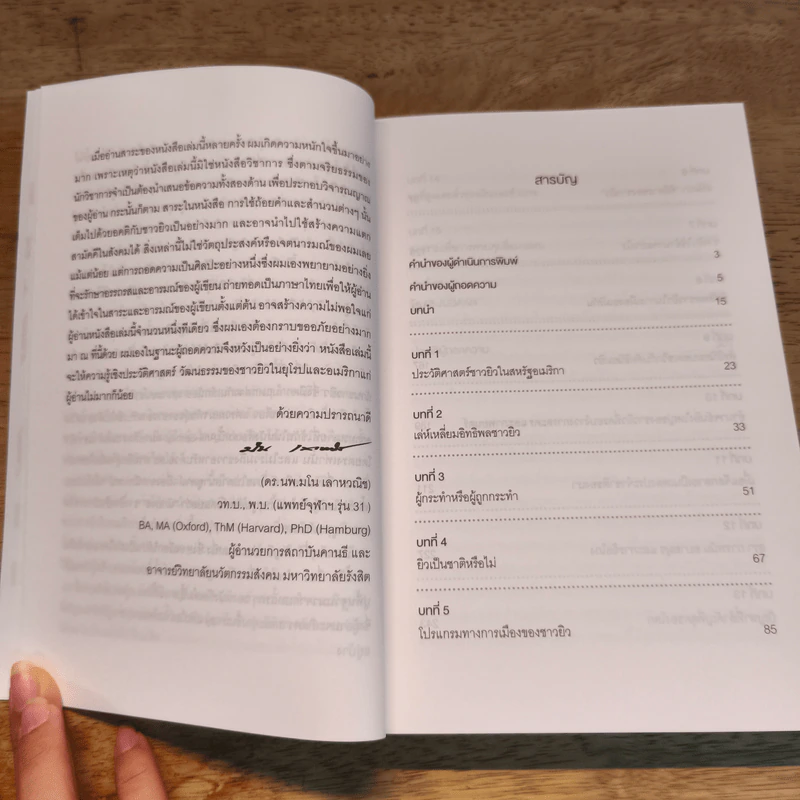 เมื่ออ่านสาระของหนังสือเล่มนี้หลายครั้ง ผมเกิดความหนักใจขึ้นมาอย่าง
มาก เพราะเหตุว่าหนังสือเล่มนี้มิใช่หนังสือวิชาการ ซึ่งตามจริยธรรมของ
นักวิชาการจำเป็นต้องนำเสนอข้อความทั้งสองด้าน เพื่อประกอบวิจารณญาณ
ของผู้อ่าน กระนั้นก็ตาม สาระในหนังสือ การใช้ถ้อยคำและสำนวนต่างๆ นั้น
เต็มไปด้วยอคติกับชาวยิวเป็นอย่างมาก และอาจนำไปใช้สร้างความแตก
สามัคคีในสังคมได้ สิ่งเหล่านี้ไม่ใช่วัตถุประสงค์หรือเจตนารมณ์ของผมเลย
แม้แต่น้อย แต่การถอดความเป็นศิลปะอย่างหนึ่งซึ่งผมเองพยายามอย่างยิ่ง
ที่จะรักษาอรรถรสและอารมณ์ของผู้เขียน ถ่ายทอดเป็นภาษาไทยเพื่อให้ผู้อ่าน
ได้เข้าใจในสาระและอารมณ์ของผู้เขียนตั้งแต่ต้น อาจสร้างความไม่พอใจแก่
ผู้อ่านหนังสือเล่มนี้จำนวนหนึ่งทีเดียว ซึ่งผมเองต้องกราบขออภัยอย่างมาก
มา ณ ที่นี้ด้วย ผมเองในฐานะผู้ถอดความจึงหวังเป็นอย่างยิ่งว่า หนังสือเล่มนี้
จะให้ความรู้เชิงประวัติศาสตร์ วัฒนธรรมของชาวยิวในยุโรปและอเมริกาแก่
ผู้อ่านไม่มากก็น้อย
ด้วยความปรารถนาดี
(ดร.นพ.มโน เลาหวณิช)
วท.บ., พ.บ. (แพทย์จุฬาฯ รุ่น 31)
BA, MA (Oxford), ThM (Harvard), PhD (Hamburg)
ผู้อำนวยการสถาบันคานธี และ
อาจารย์วิทยาลัยนวัตกรรมสังคม มหาวิทยาลัยรังสิต
สารบัญ
คำนำของผู้ดำเนินการพิมพ์ 3
คำนำของผู้ถอดความ 5
บทนำ 15
บทที่ 1
ประวัติศาสตร์ชาวยิวในสหรัฐอเมริกา 23
บทที่ 2
เล่ห์เหลี่ยมอิทธิพลชาวยิว 33
บทที่ 3
ผู้กระทำหรือผู้ถูกกระทำ 51
บทที่ 4
ยิวเป็นชาติหรือไม่ 67
บทที่ 5
โปรแกรมทางการเมืองของชาวยิว 85